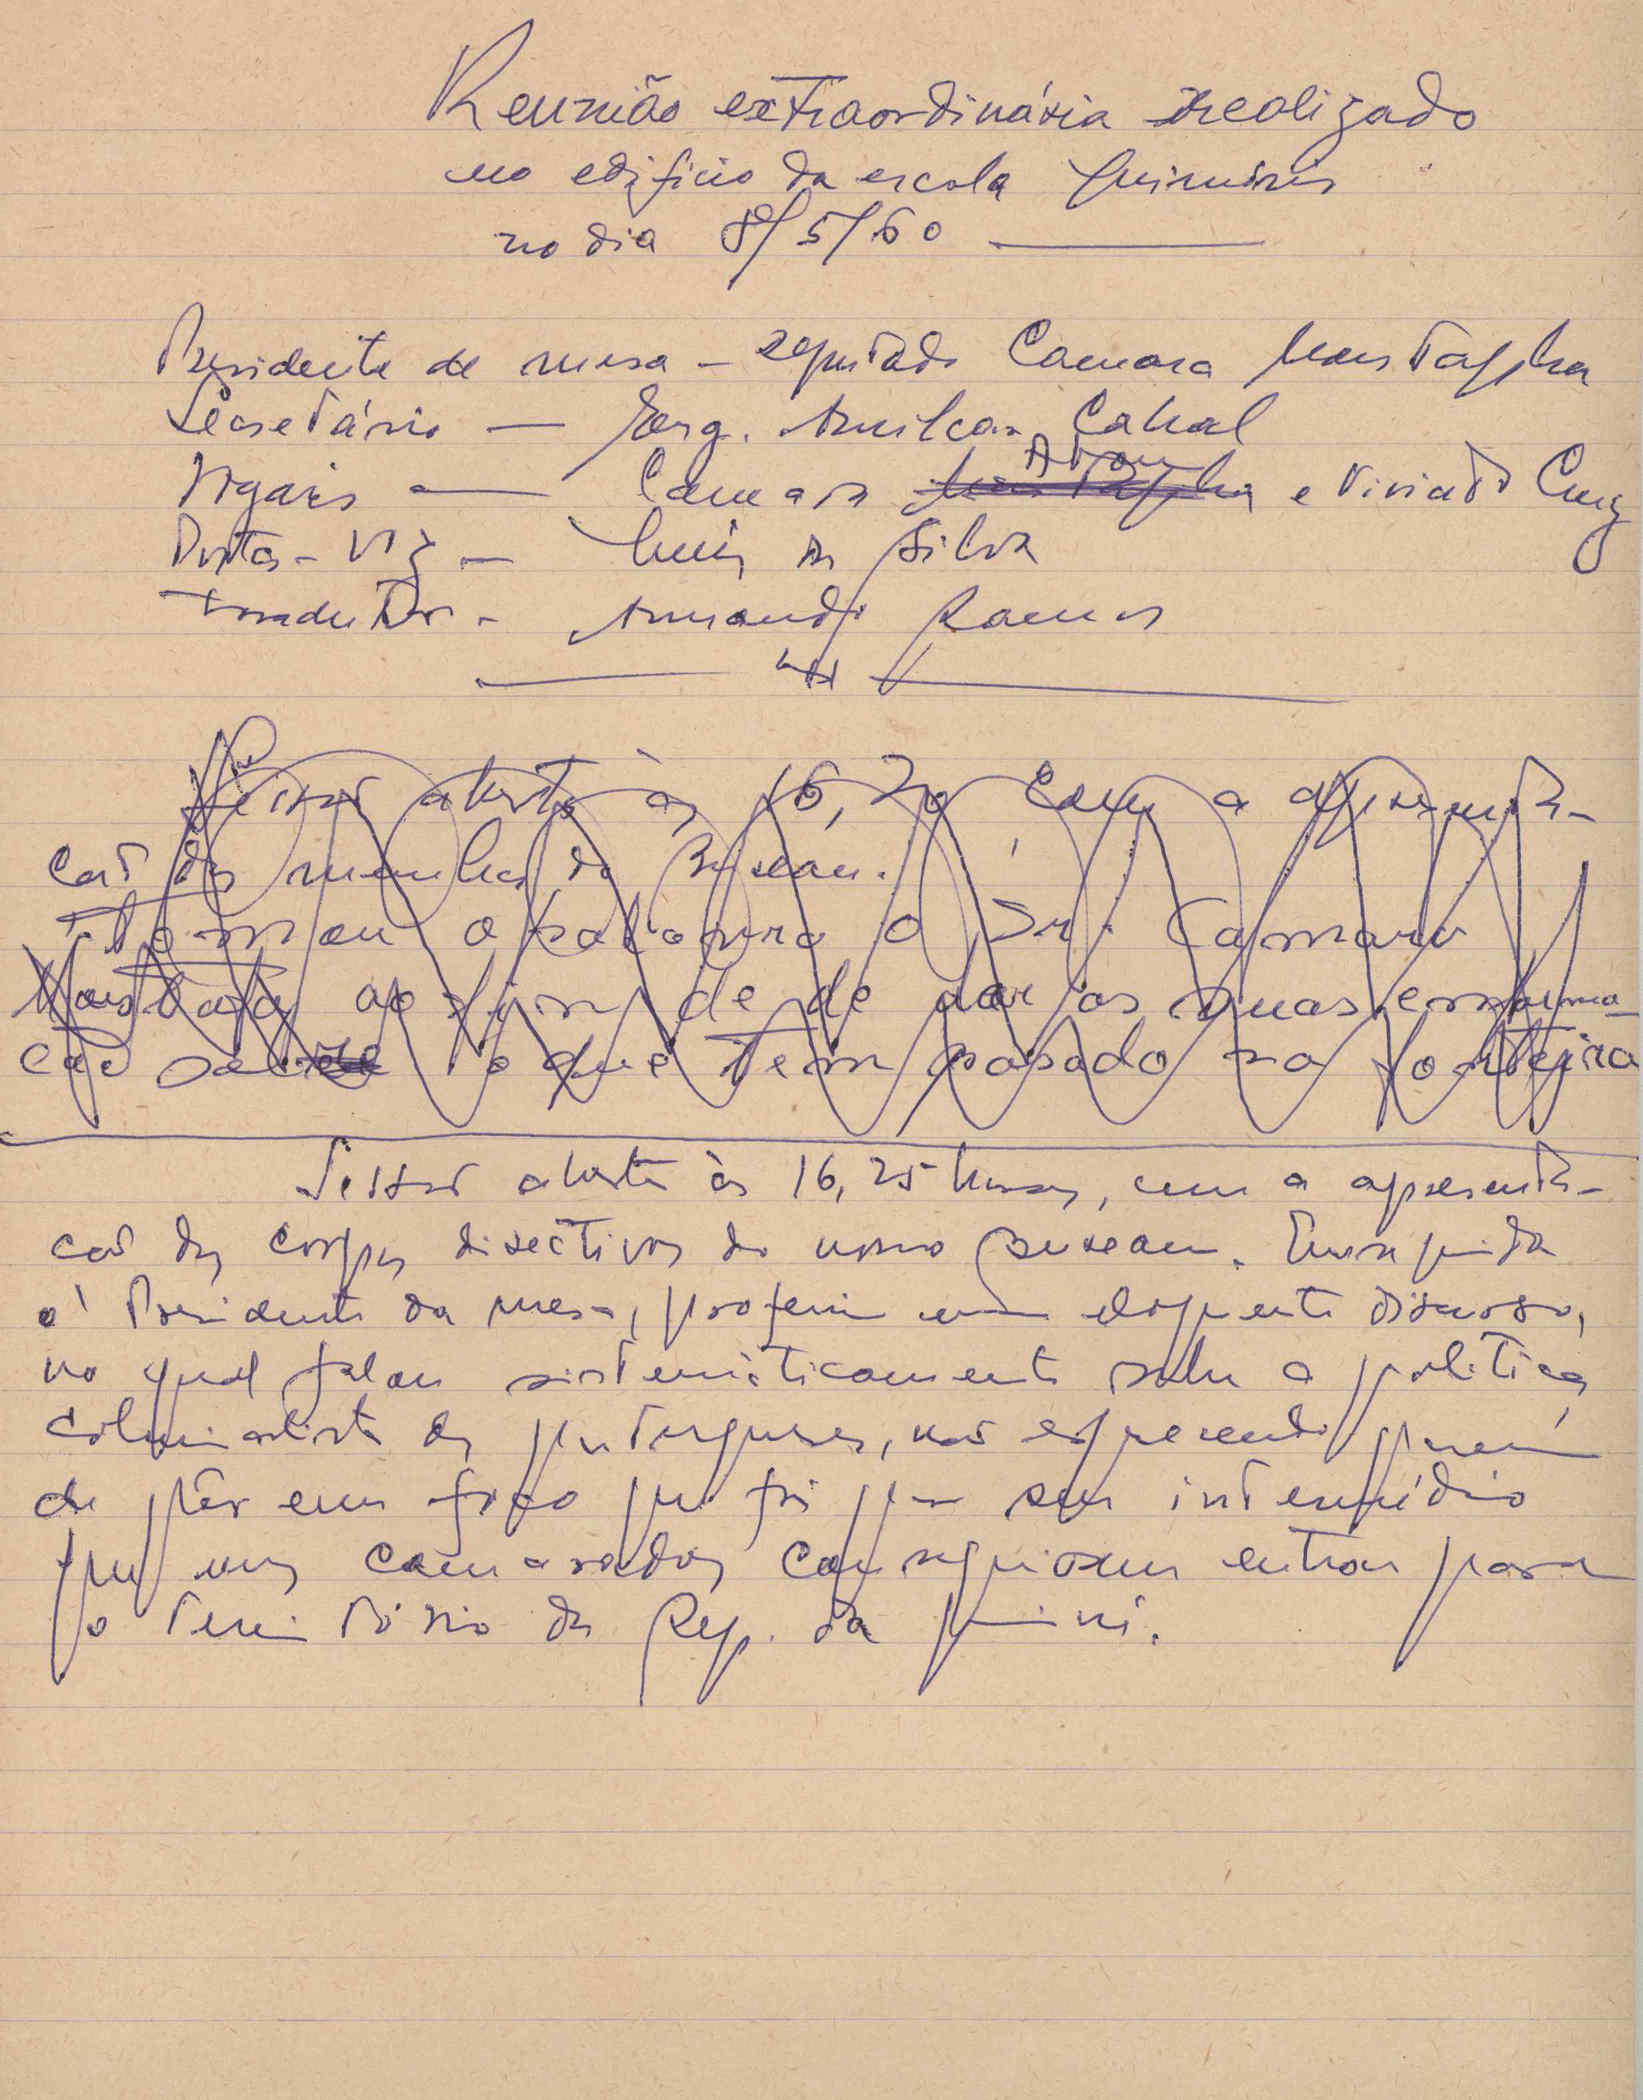 Reunião extraordinária realizado
no edifício da escola
no dia 8/5/60
Presidente de mesa - deputado Camara Moustapha
Secretário — Eng. Amilcar Cabral
Vogais — Camara Moustapha e Viriato Cruz
Porta-voz — Luiz da Silva
Tradutor - Armando Ramos
Sessão aberta às 16,20, com a apresenta-
ção dos membros do Bureau.
Tomou a palavra o Sr. Camara
Moustafa ao fim de de dar as suas emforma
ção sobre o que tem pasado na fonteira
Sessão aberta às 16,25 horas, com a apresenta-
ção dos corpos directivos do nosso Bureau. Em seguida
o Presidente da mesa, proferiu um eloquente discurso,
no qual falou sistemàticamente sobre a política
colonialista dos portugueses, não esquecendo porém
de pôr em foco que foi por seu intermédio
que uns camaradas conseguiram entrar para
o território da Rep. da Guiné.